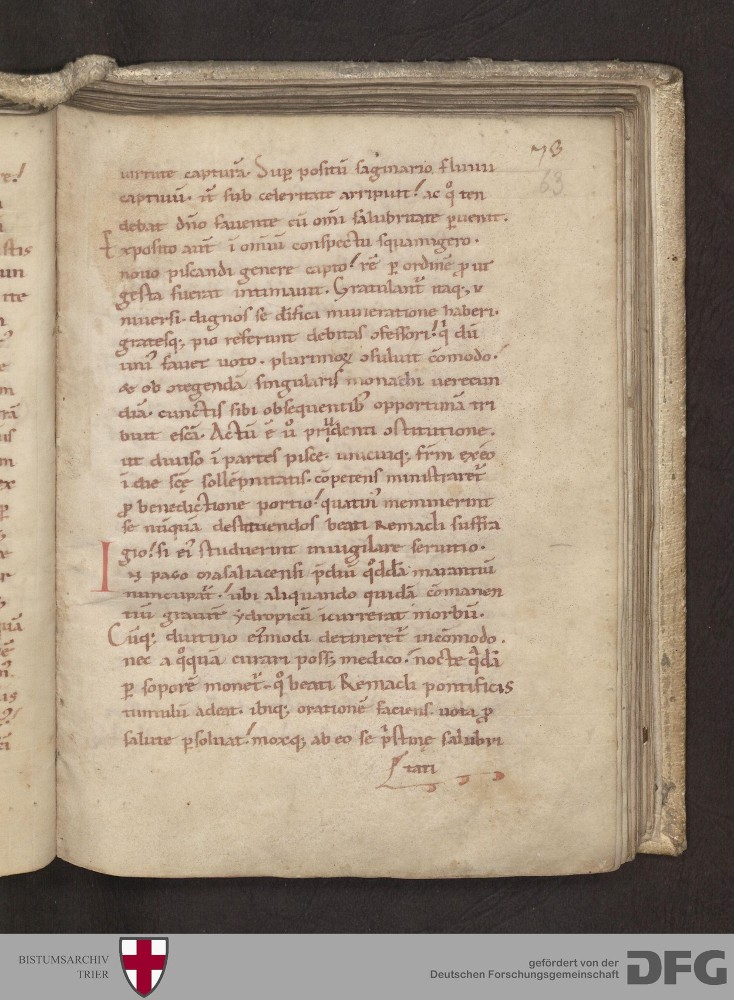 73
63
uirtute capturā. Sup̱ positū sagmario fluuii
captiuū. n̄ sub celeritate arripuit! ac qͦ ten
debat dn̄o fauente cū om̄i salubritate puenit.
Exposito aut̄ ī om̄iū conspectu squamigero.
nouo piscandi genere capto! rē p̱ ordinē ꝓ ut
gesta fuerat intimauit. Gratulant̄ itaq;, u
niuersi. dignos se
muneratione haberi.
gratesq;, pio referunt debitas ꝯfessori! qͥ dū
uniꝰ fauet uoto. plurimoꝝ ꝯsuluit cōmodo!
& ob ꝯtegendā singularis monachi uerecun
diā. cunctis sibi obsequentibꝰ opportunā tri
buit escā. Actū ē u̅o prudenti ꝯstitutione.
ut diuiso ī partes pisce. unicuiq; fr̄m ex eo
ī die scē sollēpnitatis. cōpetens ministraret̄
ꝓ benedictione portio! quatinꝰ meminerint
se nūquā destituendos beati Remacli suffra
gio! si eiꝰ studuerint inuigilare seruitio.
IN pago ꝯasaliacensi p̄diū qͦddā maiantiū
nuncupat̄! ubi aliquando quidā cōmanen
tiū grauit̄ ydropicū īcurrerat morbū.
Cūq; diutino eiꝰmodi detineret̄ incōmodo.
nec a qͦquā curari poss; medico! nocte qͣdā
p̱ soporē monet̄. qͦ beati Remacli pontificis
tumulū adeat. ibiq; orationē faciens. uota ꝓ
salute psoluat! moxq; ab eo se pͥstinę salubri
tati
BISTUMSARCHIV
TRIER
gefördert von der
Deutschen Forschungsgemeinschaft
DFG